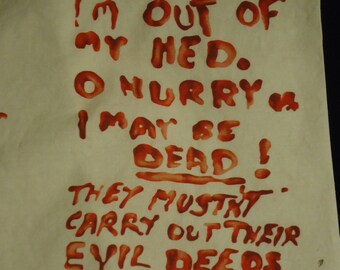 I'M OUT OF
MY HED.
O HURRY OR
I MAY BE
DEAD!
THEY MUSTN'T
CARRY OUT THEIR
EVIL DEEDS